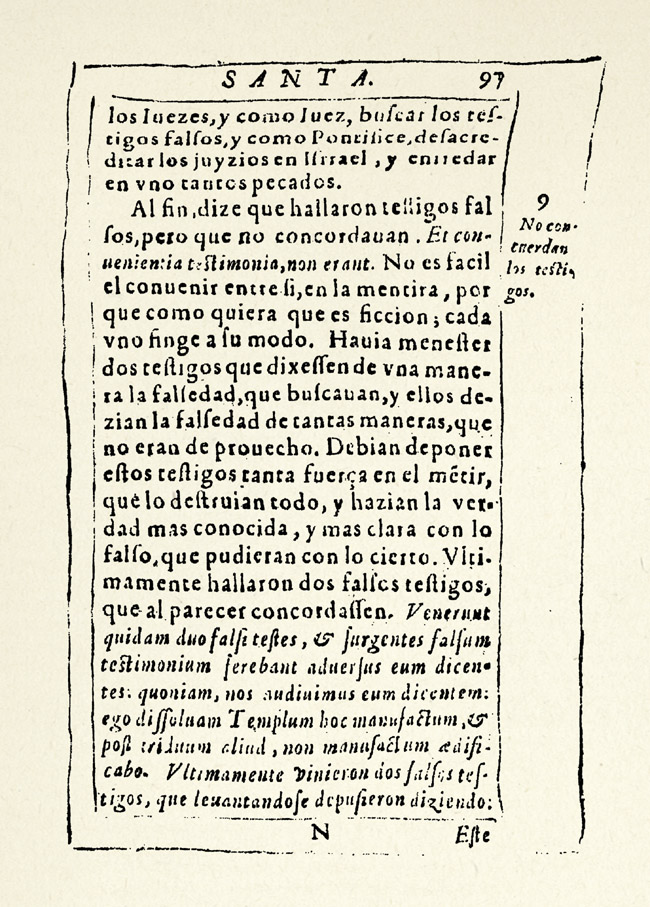 SANTA. 97
los Iuezes, y como Iuez, buſcar los teſ-
tigos falſos, y como Pontifice, deſacre-
ditar los juyzios en Iſrrael, y enrredar
en vno tantos pecados.
Al fin, dize que hallaron teſtigos fal
ſos, pero que no concordauan. Et con-
uenientia teſtimonia, non erant. No es facil
el conuenir entre ſi, en la mentira, por
que como quiera que es ficcion; cada
vno finge a ſu modo. Hauia meneſter
dos teſtigos que dixeſſen de vna mane-
ra la falſedad, que buſcauan, y ellos de-
zian la falſedad de tantas maneras, que
no eran de prouecho. Debian deponer
eſtos teſtigos tanta fuerça en el mẽtir,
que lo deſtruian todo, y hazian la ver-
dad mas conocida, y mas clara con lo
falſo, que pudieran con lo cierto. Vlti-
mamente hallaron dos falſos teſtigos,
que al parecer concordaſſen. Venerunt
quidam duo falſi teſtes, & ſurgentes falſum
teſtimonium ferebant aduerſus eum dicen-
tes: quoniam, nos audiuimus eum dicentem:
ego diſſoluam Templum hoc manufactum, &
poſt triduum aliud, non manufactum ædifi-
cabo. Vltimamente vinieron dos falſos teſ-
tigos, que leuantandoſe depuſieron diziendo:
N Eſte
9
No con-
cuerdan
los teſti-
gos.